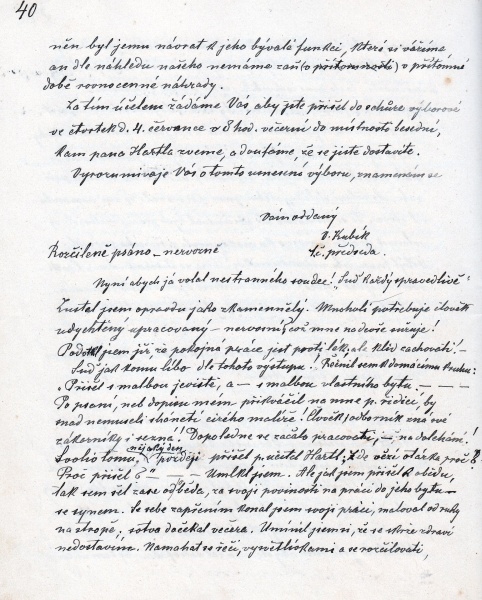 40
něn byl jemu návrat k jeho bývalé funkci, které si vážíme
an dle náhledu našeho nemáme zaň (o přítomnosti) v přítomné
době rovnocenné náhrady.
Za tím účelem žádáme Vás, aby jste přišel do schůze výborové
ve čtvrtek d. 4. července v 8 hod. večerní do místnosti besední,
kam pana Hartla zveme, a doufáme, že se jiste dostavíte.
Vyrozumívaje Vás o tomto usnesení výboru, znamenám se
Vám oddaný
V. Kubík
t.č. předseda.
Rozčileně psáno – nervozně
Nyní abych já volal nestranného soudce! "Suď každý spravedlivě"
Zustal jsem opravdu jako zkamenělý. potřebuje člověk
udychtěný upracovaný – nervosní, což mne nadevše sužuje!
jsem již, že pokojná práce jest proti klid zachovati! –
Suď jak komu libo dle tohoto výstupu! Řečnil sem k domácímu
Přišel s malbou jeviště, a – s malbou vlastního bytu. – – – –
Po psaní, neb dopisu mém přikvačil na mne p. řídící, by
snad nemuseli sháněti cizého malíře! Člověk odborník zná své
zákazníky i sezna! Dopoledne se začalo pracovati, – na
nějaký den
později přišel p. učitel Hartl: Kde vězí otázka proč?
Proč přišel – – – Umlkl jsem. Ale jak jsem přišel k obědu,
tak sem šel zase od oběda, za svojí povinností na práci do jeho bytu –
se synem. Se sebe zapřením konal jsem svoji práci, maloval od ruky
na stropě, sotva dočekal večera. Umínil jsem si, že se skrze zdraví
nedostavím. Namáhat se řečí, vysvětlivkami a se rozčilovati,